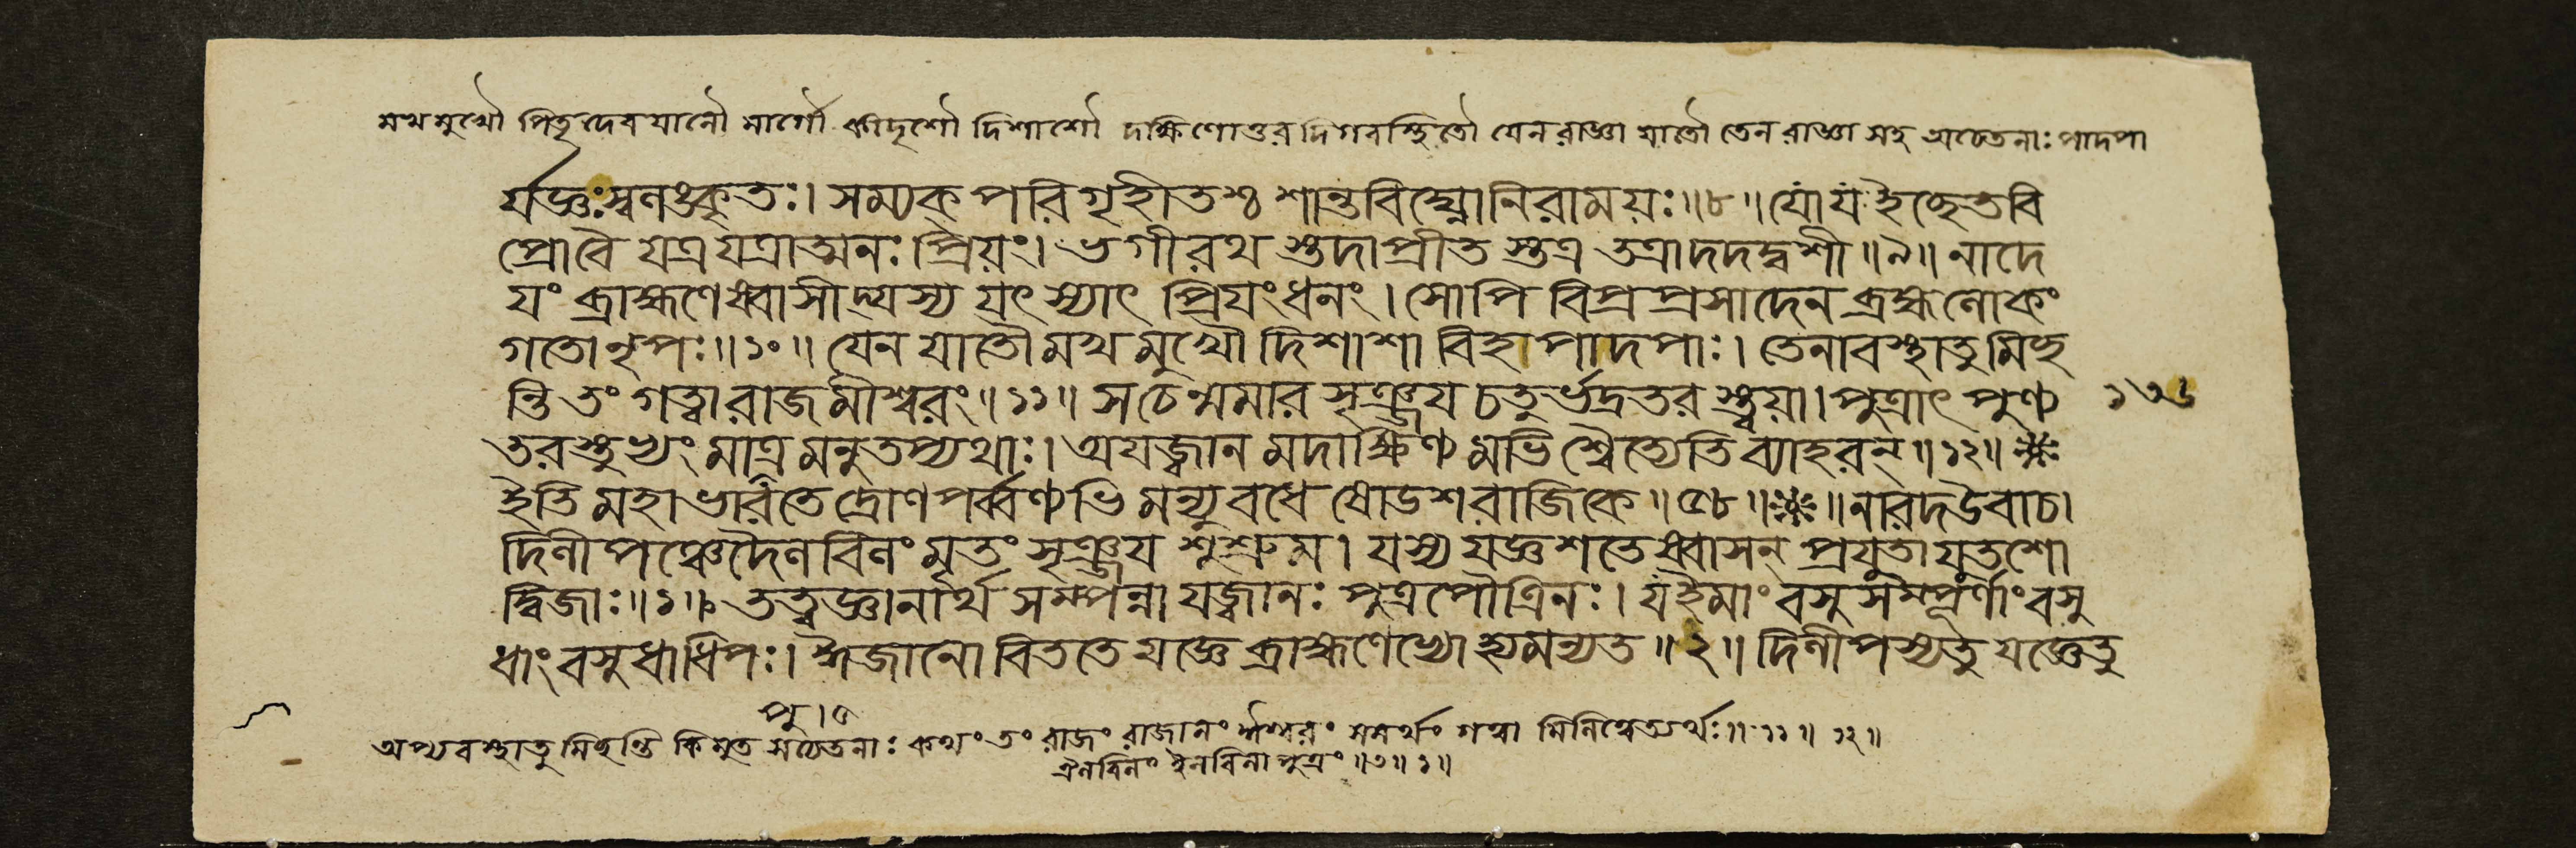 মখমুখৌ পিতৃদেবযানৌ মার্গৌ কীদৃশৌ দিশাশৌ দক্ষিণোত্তরদিগবস্থিতৌ যেন রাজ্ঞা যাতৌ তেন রাজ্ঞা সহ অচেতনাঃ পাদপা
র্যজ্ঞঃস্বলঙ্কৃতঃ। সম্যক্পরিগৃহীতশ্চ শান্তবিঘ্নোনিরাময়ঃ॥৮॥যোযং ইচ্ছেতবি
প্রোবৈ যত্রযত্রাত্মনঃ প্রিয়ং। ভগীরথ স্তদাপ্রীত স্তত্র তত্রাদদদ্বশী॥৯॥ নাদে
যং ব্রাহ্মণেষ্বাসীদ্যস্য যৎ স্যাৎ প্রিয়ংধনং। সোপি বিপ্র প্রসাদেন ব্রহ্মলোকং
গতোনৃপঃ॥১০॥ যেন যাতৌ মখ মুখৌ দিশাশা বিহ পাদপাঃ। তেনাবস্থাতুমিচ্ছ
ন্তি তং গত্বা রাজমীশ্বরং॥১১॥ সচেন্মমার সৃঞ্জয চতুর্ভদ্রতর স্ত্বয়া। পুত্রাৎ পুণ্য ১৩৬
তরস্তুভ্যং মাত্রমনুতপ্যথাঃ। অযজ্বান মদাক্ষিণ্য মভি শ্বৈত্যেতি ব্যাহরন্॥১২॥
ইতি মহাভারতে দ্রোণপর্ব্বণ্যভিমন্যুবধে ষোডশরাজিকে॥৫৮॥ ॥নারদউবাচ।
দিলীপঞ্চেদৈলবিলং মৃতং সৃঞ্জয শুশ্রুম। যস্য যজ্ঞশতেষ্বাসন্ প্রযুতাযুতশো
দ্বিজাঃ॥১॥ তত্ত্বজ্ঞানার্থ সম্পন্না যজ্বানঃ পুত্রপৌত্রিনঃ। য ইমাং বসুসম্পূর্ণাং বসু
ধাং বসুধাধিপঃ। ঈজানো বিততে যজ্ঞে ব্রাহ্মণেভ্যো হ্যমন্যত॥২॥ দিলীপস্যেতু যজ্ঞেতু
অপ্যবস্থাতুমিচ্ছন্তি কিমুত সচেতনাঃ কথং তং রাজং রাজানং ঈশ্বরং সমর্থং গত্বা মিলিত্বেত্যর্থঃ॥১১॥ ১২॥
ঐলবিলং ইলবিলাপুত্রং॥ ১॥